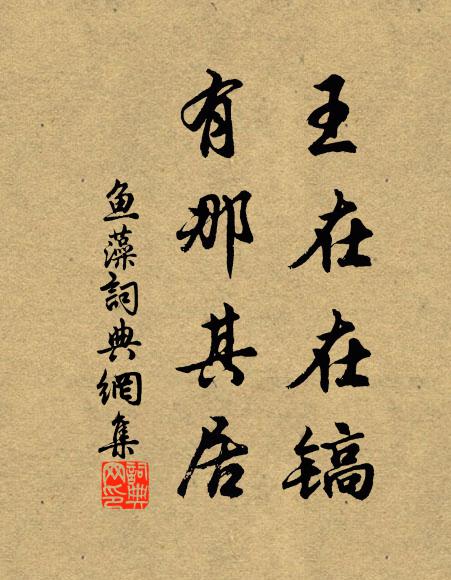 王在在镐
有那其居
鱼藻詞典網集
詞典
网印